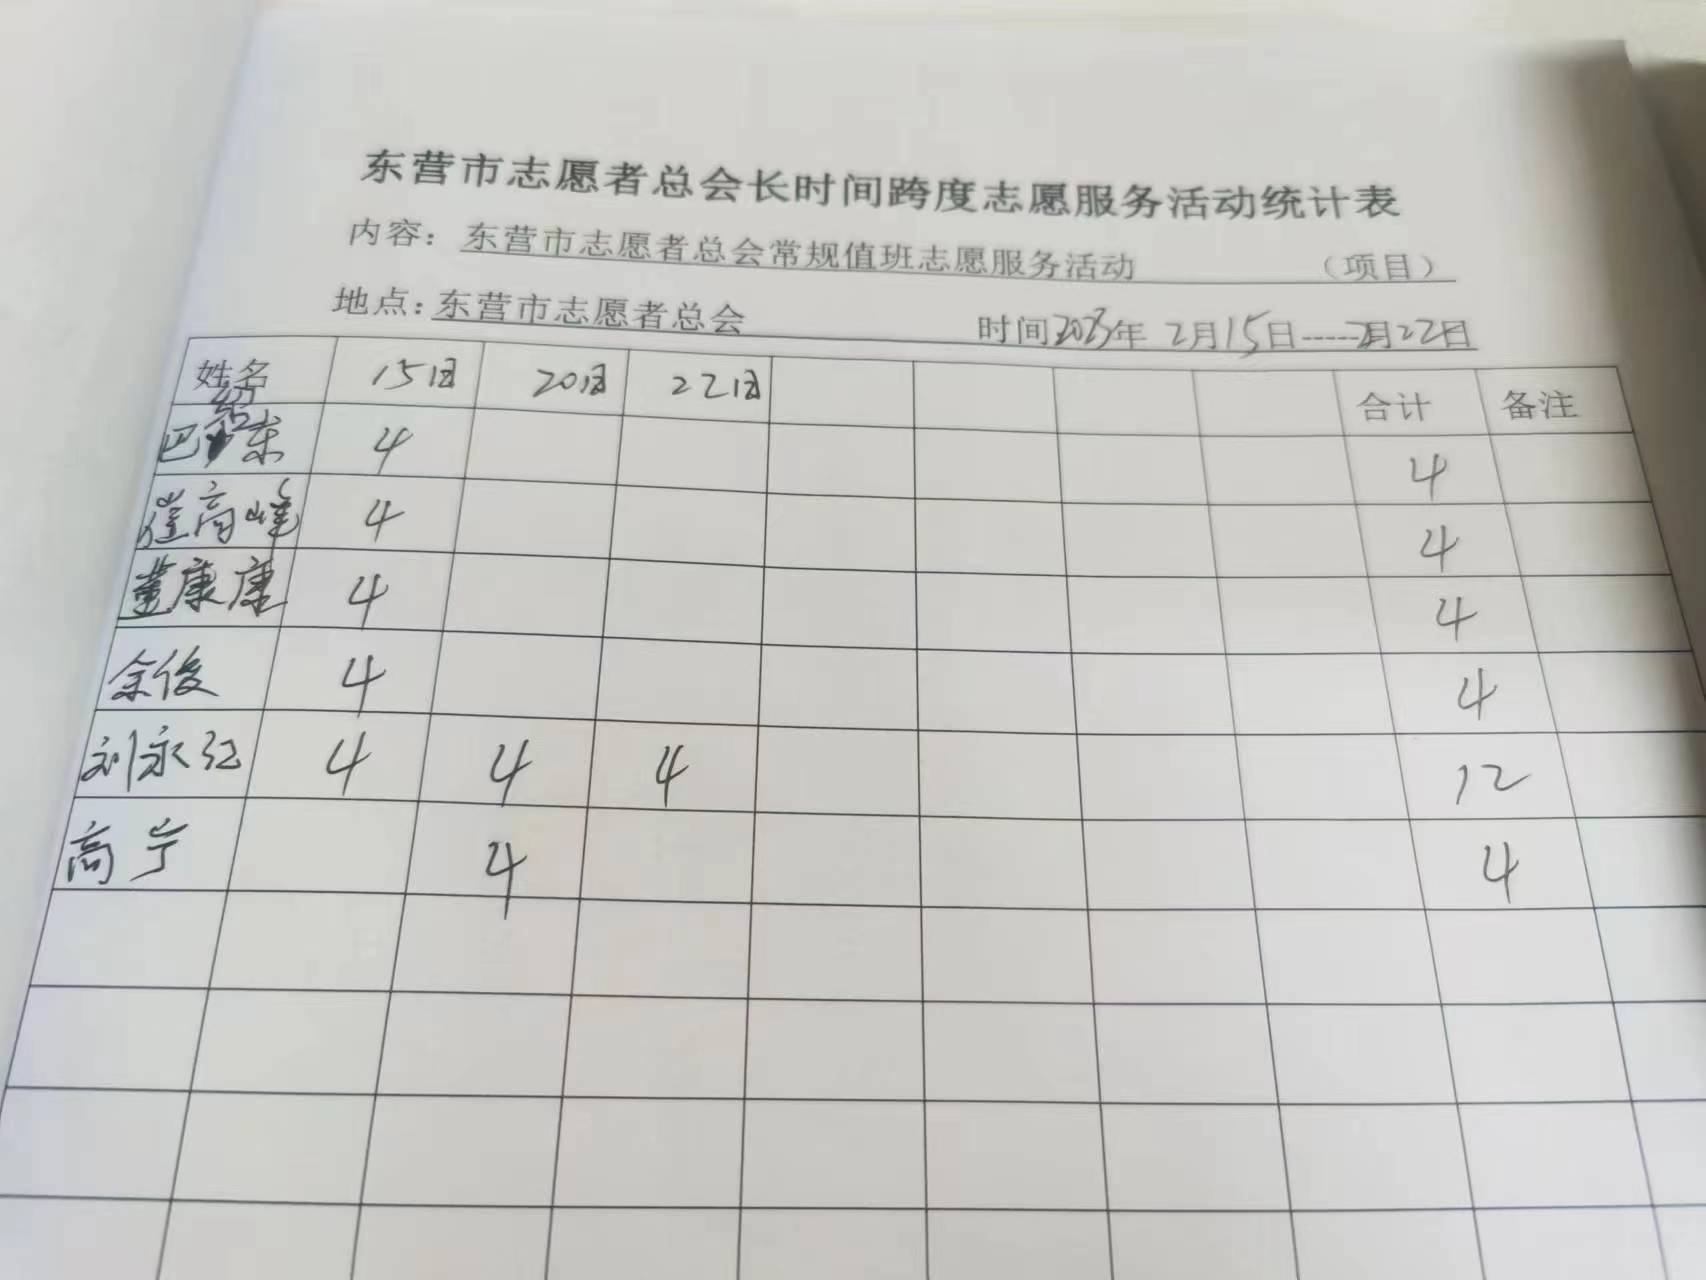 东营市志愿者总会长时间跨度志愿服务活动统计表
内容：东营市志愿者总会常规值班志愿服务活动（项目）
地点：东营市志愿者总会 时间2023年 2月15日-----2月22日
姓名 15日 20日 22日 合计 备注
巴绍东 4 4
崔高峰 4 4
董康康 4 4
余俊 4 4
刘永红 4 4 4 12
高宁 4 4